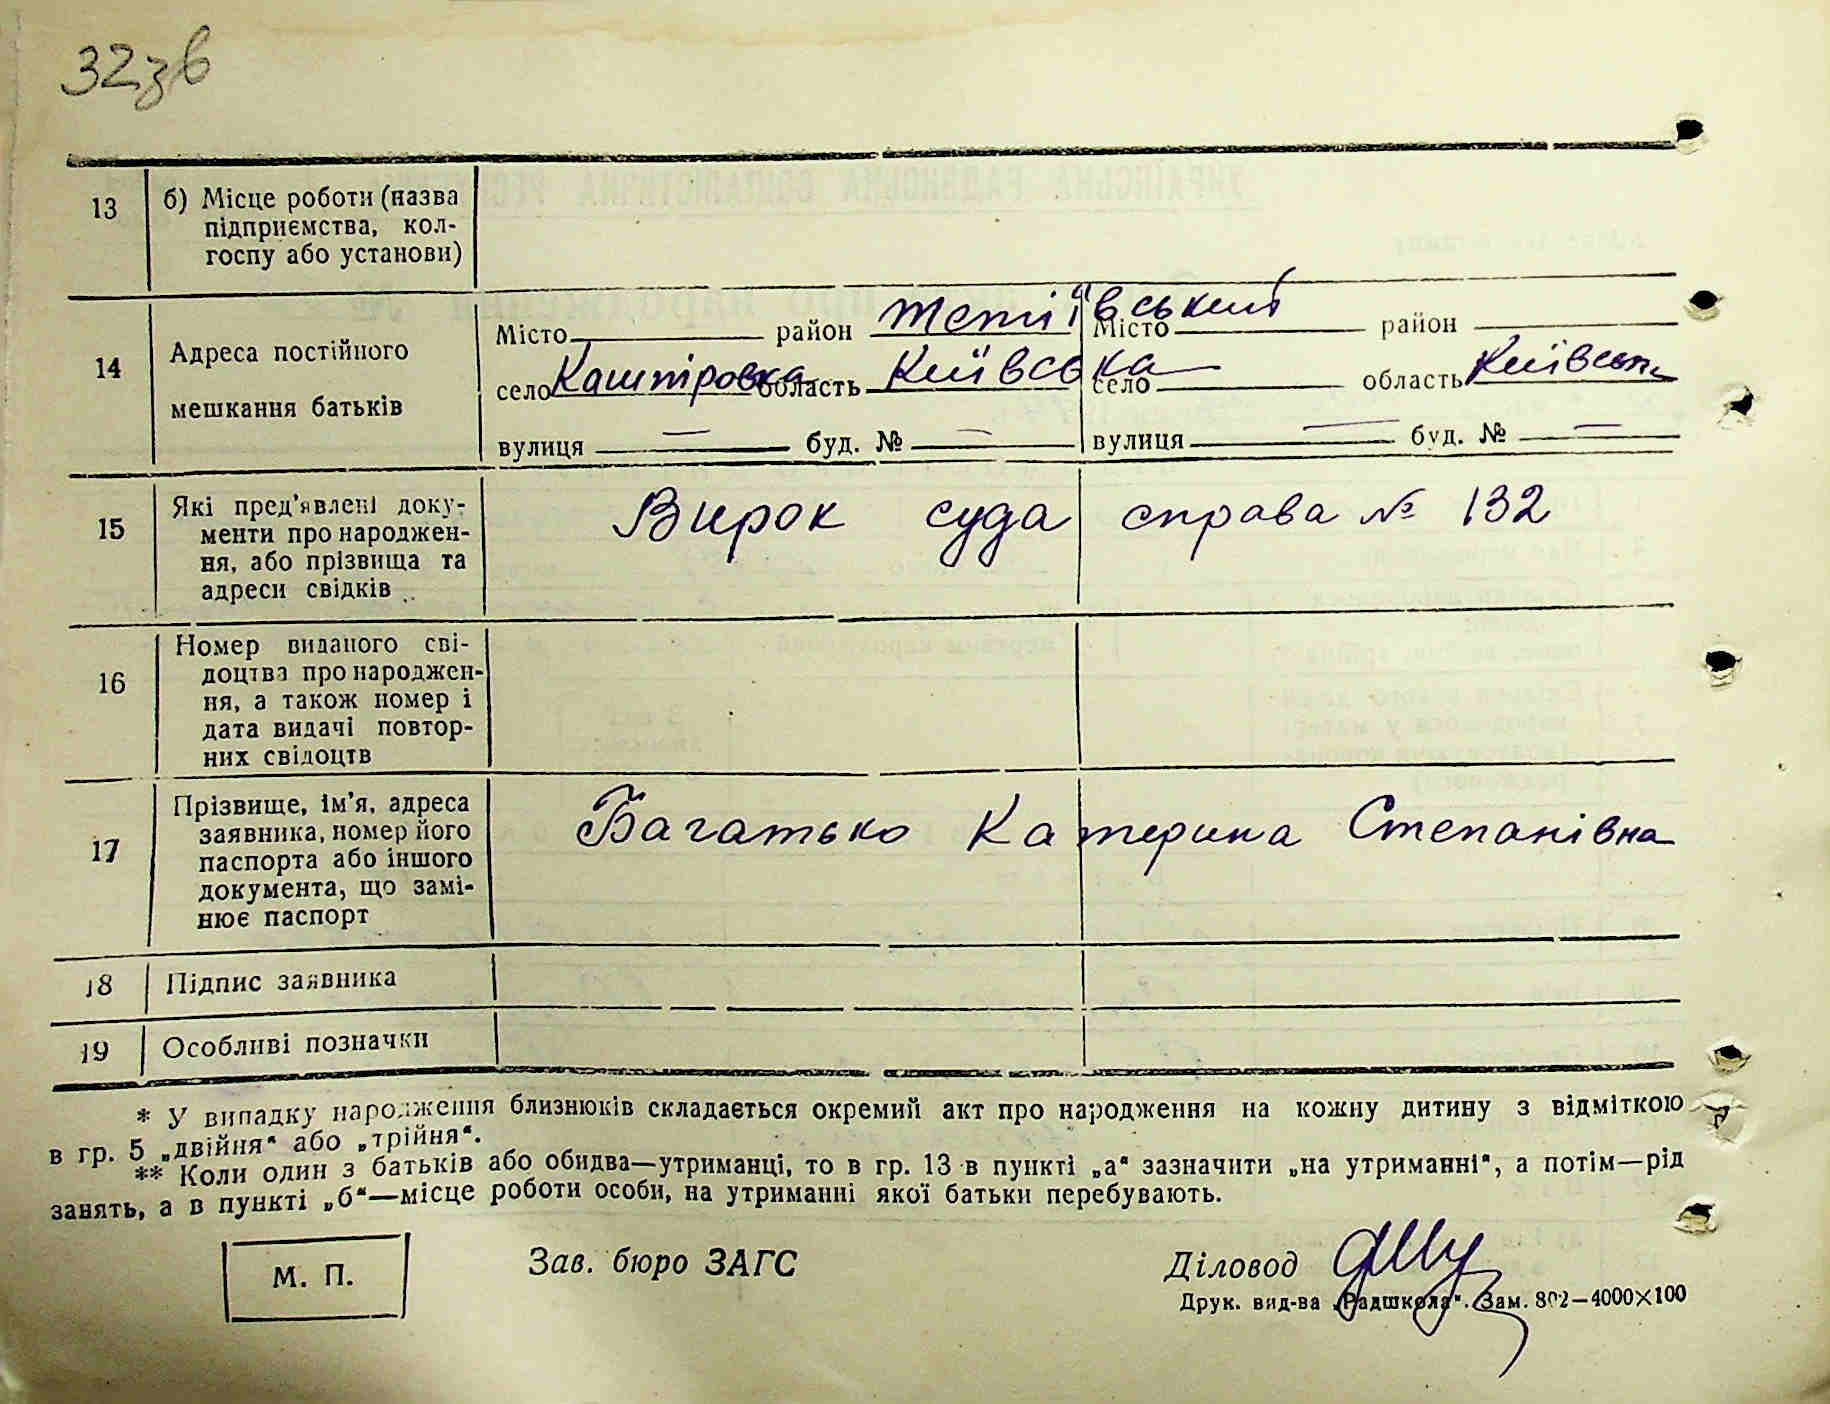 32зв
13 б) Місце роботи (назва
підприємства, кол-
госпу або установи)
14 Адреса постійного
мешкання батьків
Місто район Тетіївський Місто район
село Кашпіровка область Київська село область Київськ
вулиця — буд. № — вулиця — буд. № —
15 Які пред'явлені доку-
менти про народжен-
ня, або прізвища та
адреси свідків
Вирок суда справа № 132
16 Номер виданого сві-
доцтва про народжен-
ня, а також номер і
дата видачі повтор-
них свідоцтв
17 Прізвище, ім'я, адреса
заявника, номер його
паспорта або іншого
документа, що замі-
нює паспорт
Багатько Катерина Степанівна
18 Підпис заявника
19 Особливі позначки
* У випадку народження близнюків складається окремий акт про народження на кожну дитину з відміткою
в гр. 5 „двійня“ або „трійня“.
** Коли один з батьків або обидва—утриманці, то в гр. 13 в пункті „а“ зазначити „на утриманні“, а потім—рід
занять, а в пункті „б“—місце роботи особи, на утриманні якої батьки перебувають.
М. П. Зав. бюро ЗАГС Діловод
Друк. вид-ва „Радшкола“. Зам. 802—4000×100